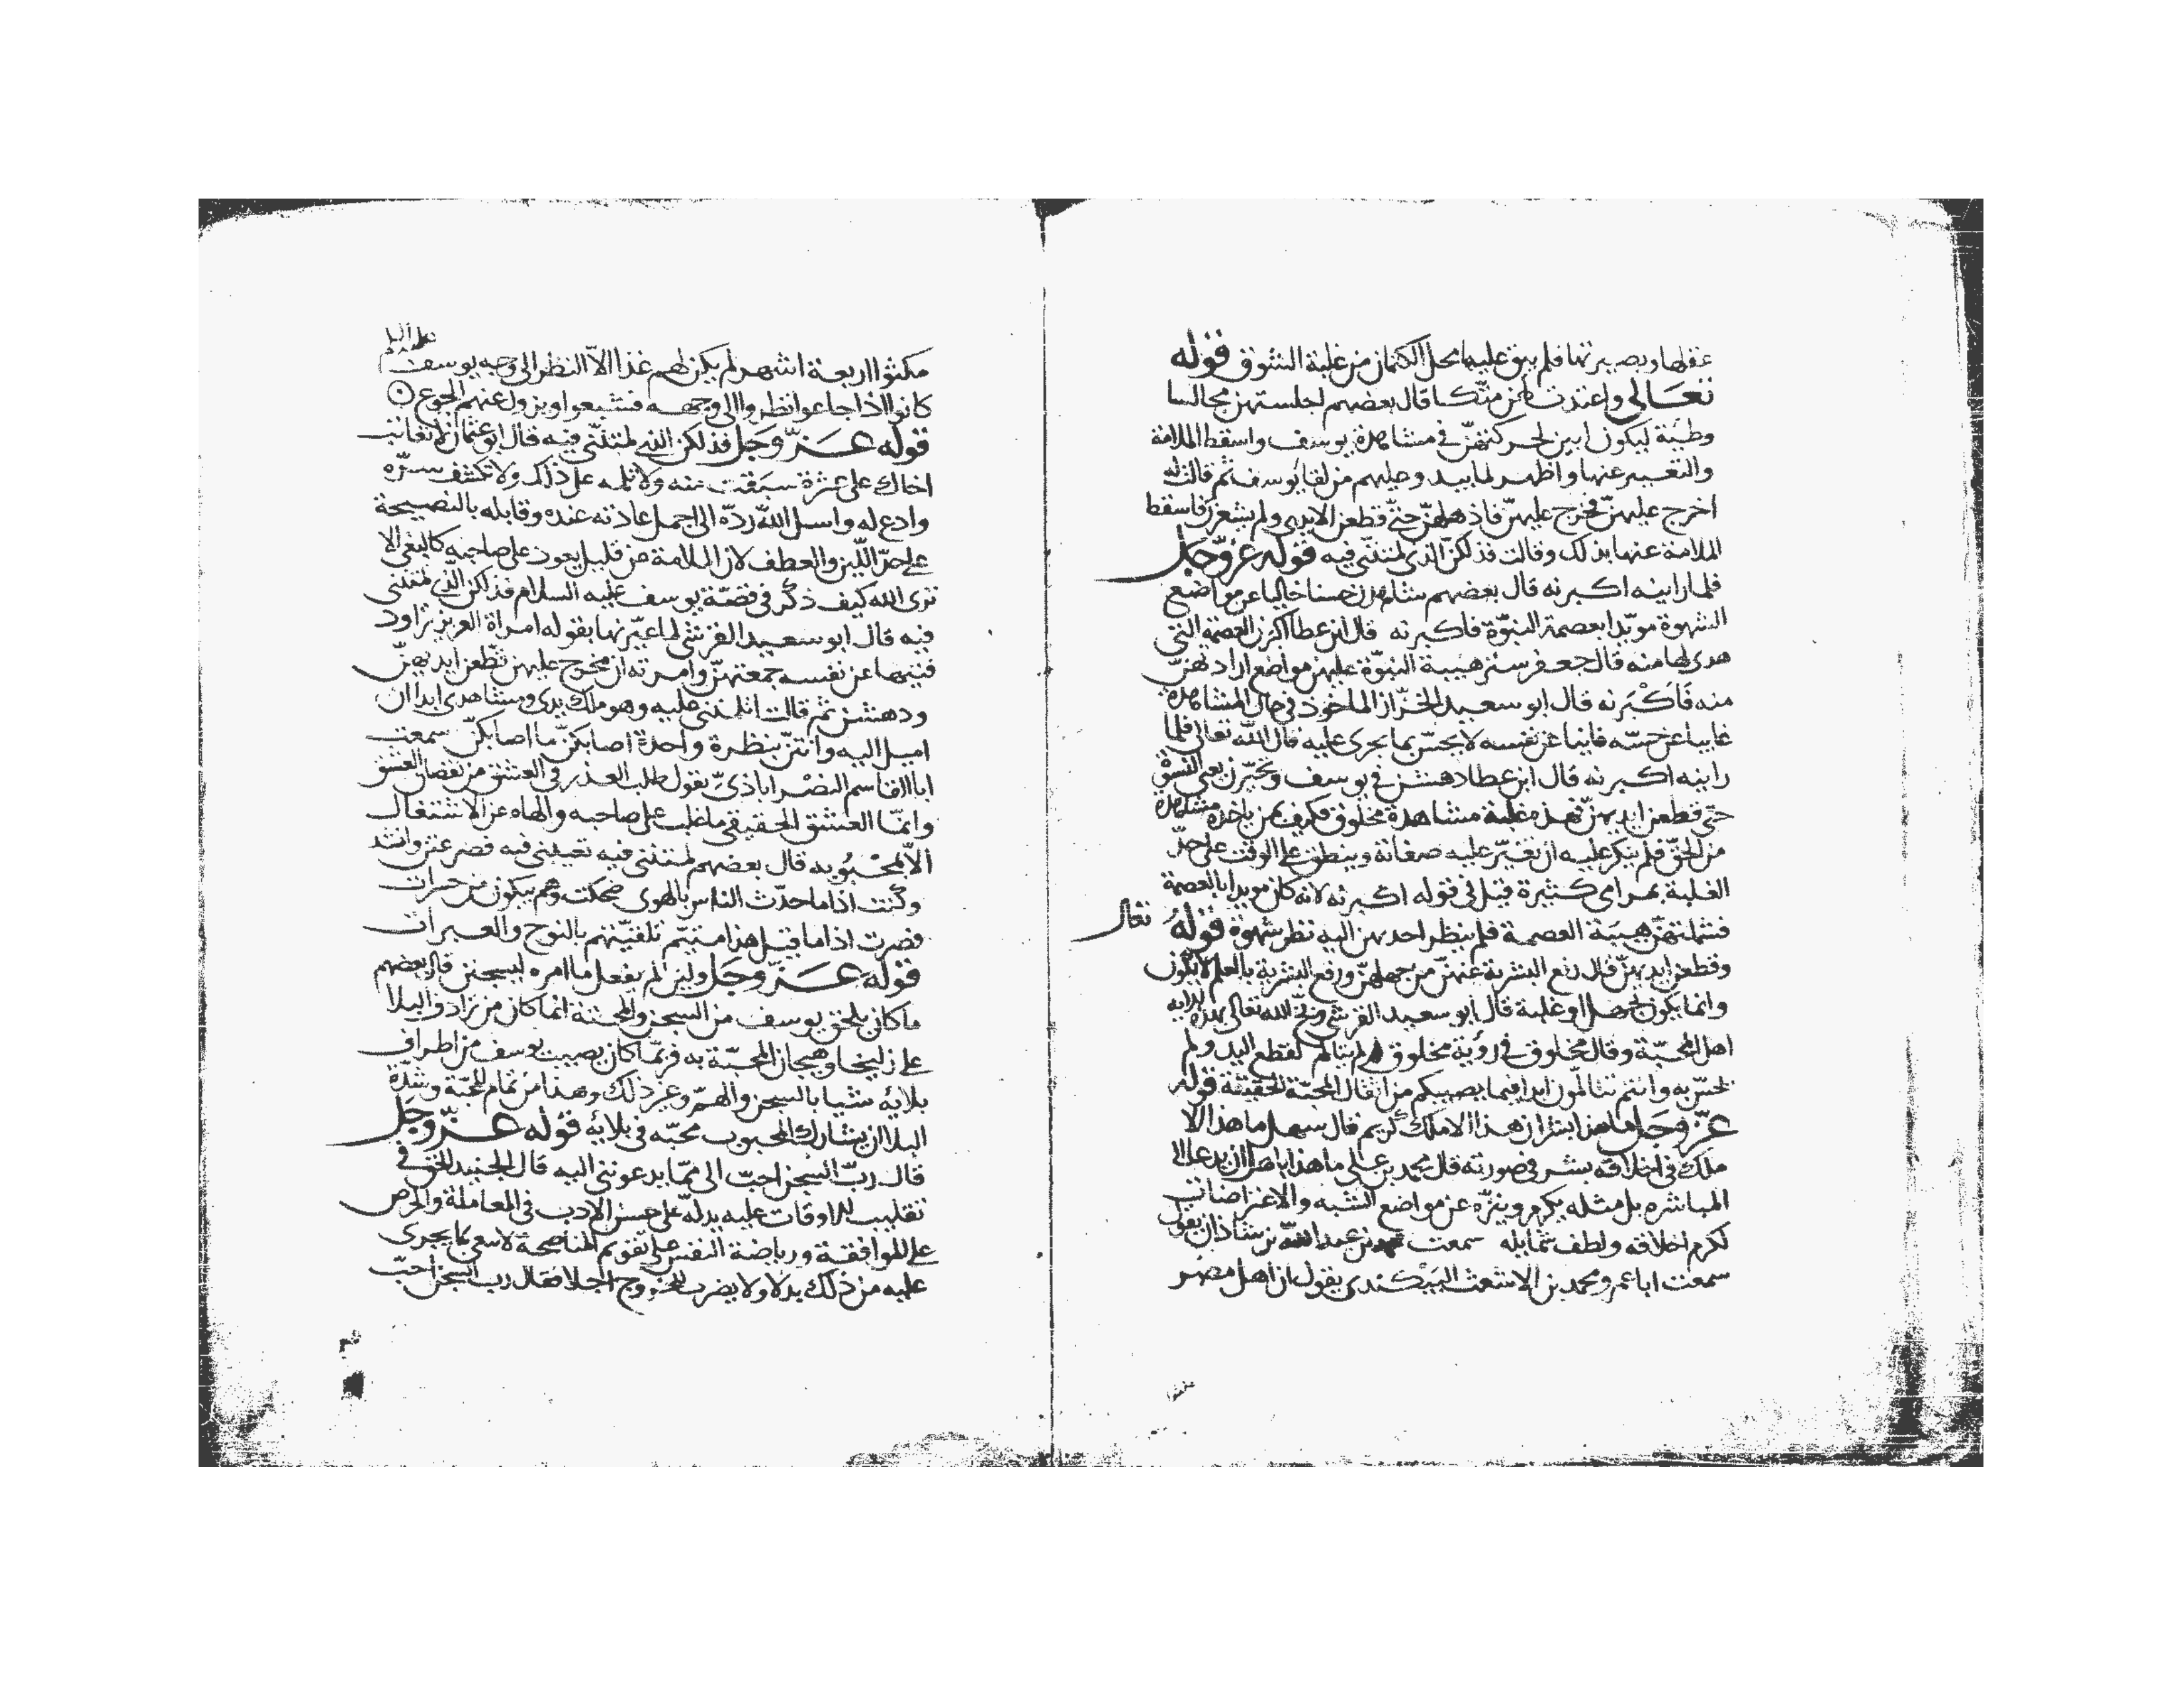 عقلها وبصيرتها فلم يبق عليها محل الكتمان من غلبة الشوق قوله
تعالى واعتدت لهن متكا قال بعضهم اجلستهن مجالسا
وطيّة ليكون ابين لحركتهنّ في مشاهدة يوسف واسقط الملامة
والتعيير عنها واظهر لما يبد وعليهم من لقا يوسف ثم قالت له
اخرج عليهنّ فخرج عليهنّ فاذهلهنّ حتّى قطعن الايدى ولم يشعرن فاسقط
الملامة عنها بذلك وقالت فذلكنّ الذى لمتنّنى فيه قوله عزّ وجلّ
فلما راينه اكبرنه قال بعضهم شاهدن حسنا خاليا عن مواضع
الشهوة مويّدا بعصمة النبوّة فاكبرنه قال ابن عطا اكبرن العصمة التى
هدى لها منه قال جعفر سترهيبة النبوّة عليهن مواضع ارادتهنّ
منه فَاَكْبَرنه قال ابو سعيد الخرّاز الماخوذ في حال المشاهدة
غايبا عن حسّه فانيا عن نفسه لا يحسّ بما يجرى عليه قال الله تعالى فلما
راينه اكبرنه قال ابن عطا دهشن في يوسف وتحيّرن يعنى النسوة
حتى قطعن ايديهنّ فهذه غلبة مشاهدة مخلوق فكيف بمن ياخذه مشاهدة
من الحقّ فلم ينكر عليه ان تغيّر عليه صفاته وينطق على الوقت على حدّ
الغلبة بمراى كثيرة قيل في قوله اكبرنه لانه كان مويدا بالعصمة
فشملتهنّ هيبة العصمة فلم ينظر احديهن اليه نظر شهوة قوله تعالى
وقطعن ايديهنّ قال رفع البشرية عنهنّ من جهلهنّ ورفع البشرية بالعلم لا يكون
وانما يكون بجهل او غلبة قال ابو سعيد القرشى وبّخ الله تعالى بهذه الايه
اهل المحبّة وقال مخلوق في رؤية مخلوق لم يتالم لقطع اليد ولم
يحسّ به وانتم تتالّمون ابدا فيما يصيبكم من اثقال المحبّة الحقيقة قوله
عزّ وجل ما هذا بشرا ان هذا الا ملك كريم قال سهل ما هذا الا
ملك في اخلاقه بشر في صورته قال محمد بن على ما هذا باهل ان يدعى الى
المباشره بل مثله يكرم وينزّه عن مواضع الشبه والاعتراضات
لكرم اخلاقه ولطف شمايله سمعت محمد بن عبد الله بن شاذان يقول
سمعت ابا عمرو محمد بن الاشعث البيكندى يقول ان اهل مصر
مكثوا اربعة اشهر لم يكن لهم غذا الاّ النظر الى وجه يوسف عليه السلم
كانوا اذا جاعوا نظروا الى وجهه فشبعوا ويزول عنهم الجوع
قوله عزّ وجل فذلكن الذى لمتنّنى فيه قال ابو عثمان لا تعاتب
اخاك على عثرة سبقت منه ولا تلمه على ذلك ولا تكشف سرّه
وادع له واسل الله ردّه الى اجمل عادته عنده وقابله بالنصيحة
على حدّ اللّين والعطف لان الملامة من قليل يعود على صاحبه كالبغى الا
ترى الله كيف ذكر في قصّة يوسف عليه السلام فذلكن الذى لمتننى
فيه قال ابو سعيد القرشى لما عيّرنها بقوله امراة العزيز تراود
فتيها عن نفسه جمعتهنّ وامرته ان يخرج عليهن فقطعن ايديهنّ
ودهشن ثم قالت اتلمننى عليه وهو ملك يدى ومشاهدى ابدا ان
اميل اليه وانتنّ بنظرة واحدة اصابكنّ ما اصابكنّ سمعت
ابا القاسم النصْراباذىّ يقول طلب العذر في العشق من نقصان العشق
وانمّا العشق الحقيقى ما غلب على صاحبه والهاه عن الاشتغال
الاّ بمحْبُوبه قال بعضهم لمتننى فيه تعيبننى فيه فصرعتن وانشد
وكنت اذا ما حدّث الناس بالهوى ضحكت وهم يبكون من حسرات
فصرت اذا ما قيل هذا متيّم تلقيّتهم بالنوح والعبرات
قوله عزّ وجل ولين لم يفعل ما امره ليسجنن قال بعضهم
ما كان يلحق يوسف من السجن والمحنة انما كان من زياد في البلا
على زليخا وهيجان المحبّة به فربّما كان يصيب يوسف من اطراف
بلائه شيا بالسجن والهمّ وغير ذلك وهذا من تمام المحبّة وشدّة
البلا ان يشارك المحبوب محبّه في بلائه قوله عزّ وجل
قال ربّ السجن احبّ الى ممّا يدعوننى اليه قال الجنيد للحق في
تقليب الاوقات عليه يدلّه على حسن الادب في المعاملة والحرص
على الموافقة ورياضة النفس على تقويم المناصحة لا سعى بما يجرى
عليه من ذلك بدلا ولا يضرب للخروج اجلا فقال ربّ السجن احبّ